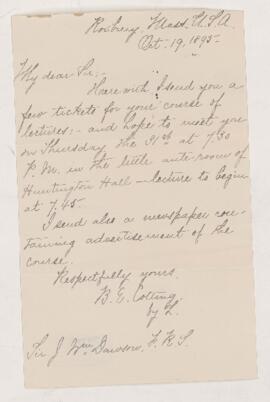 Roxbury, Mass. U.S.A.
Oct. 19, 1895.
My dear Sir:-
Herewith I send you a
few tickets for your course of
lectures:- and hope to meet you
on Thursday the 31st at 7.30
P.M. in the little ante room of
Huntington Hall - lecture to begin
at 7.45.
I send also a newspaper con-
taining advertisement of the
course.
Respectfully yours.
B. E. Cotting.
by L.
Sir J Wm Dawson, F.R.S.